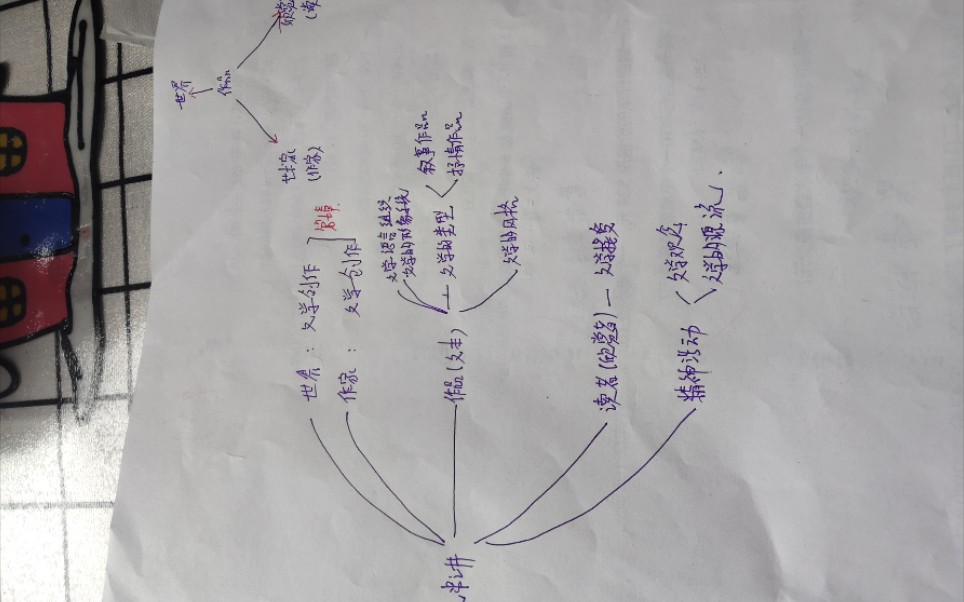 世界
作品
艺术家
(作家)
欣赏
世界：文学创作
作家：文学创作
作品(文本)
文学语言组织
文学的形象系统
文学的类型
叙事作品
抒情作品
文学的风格
读者(欣赏者)—文学接受
精神活动
文学观念
文学的源流、
串讲